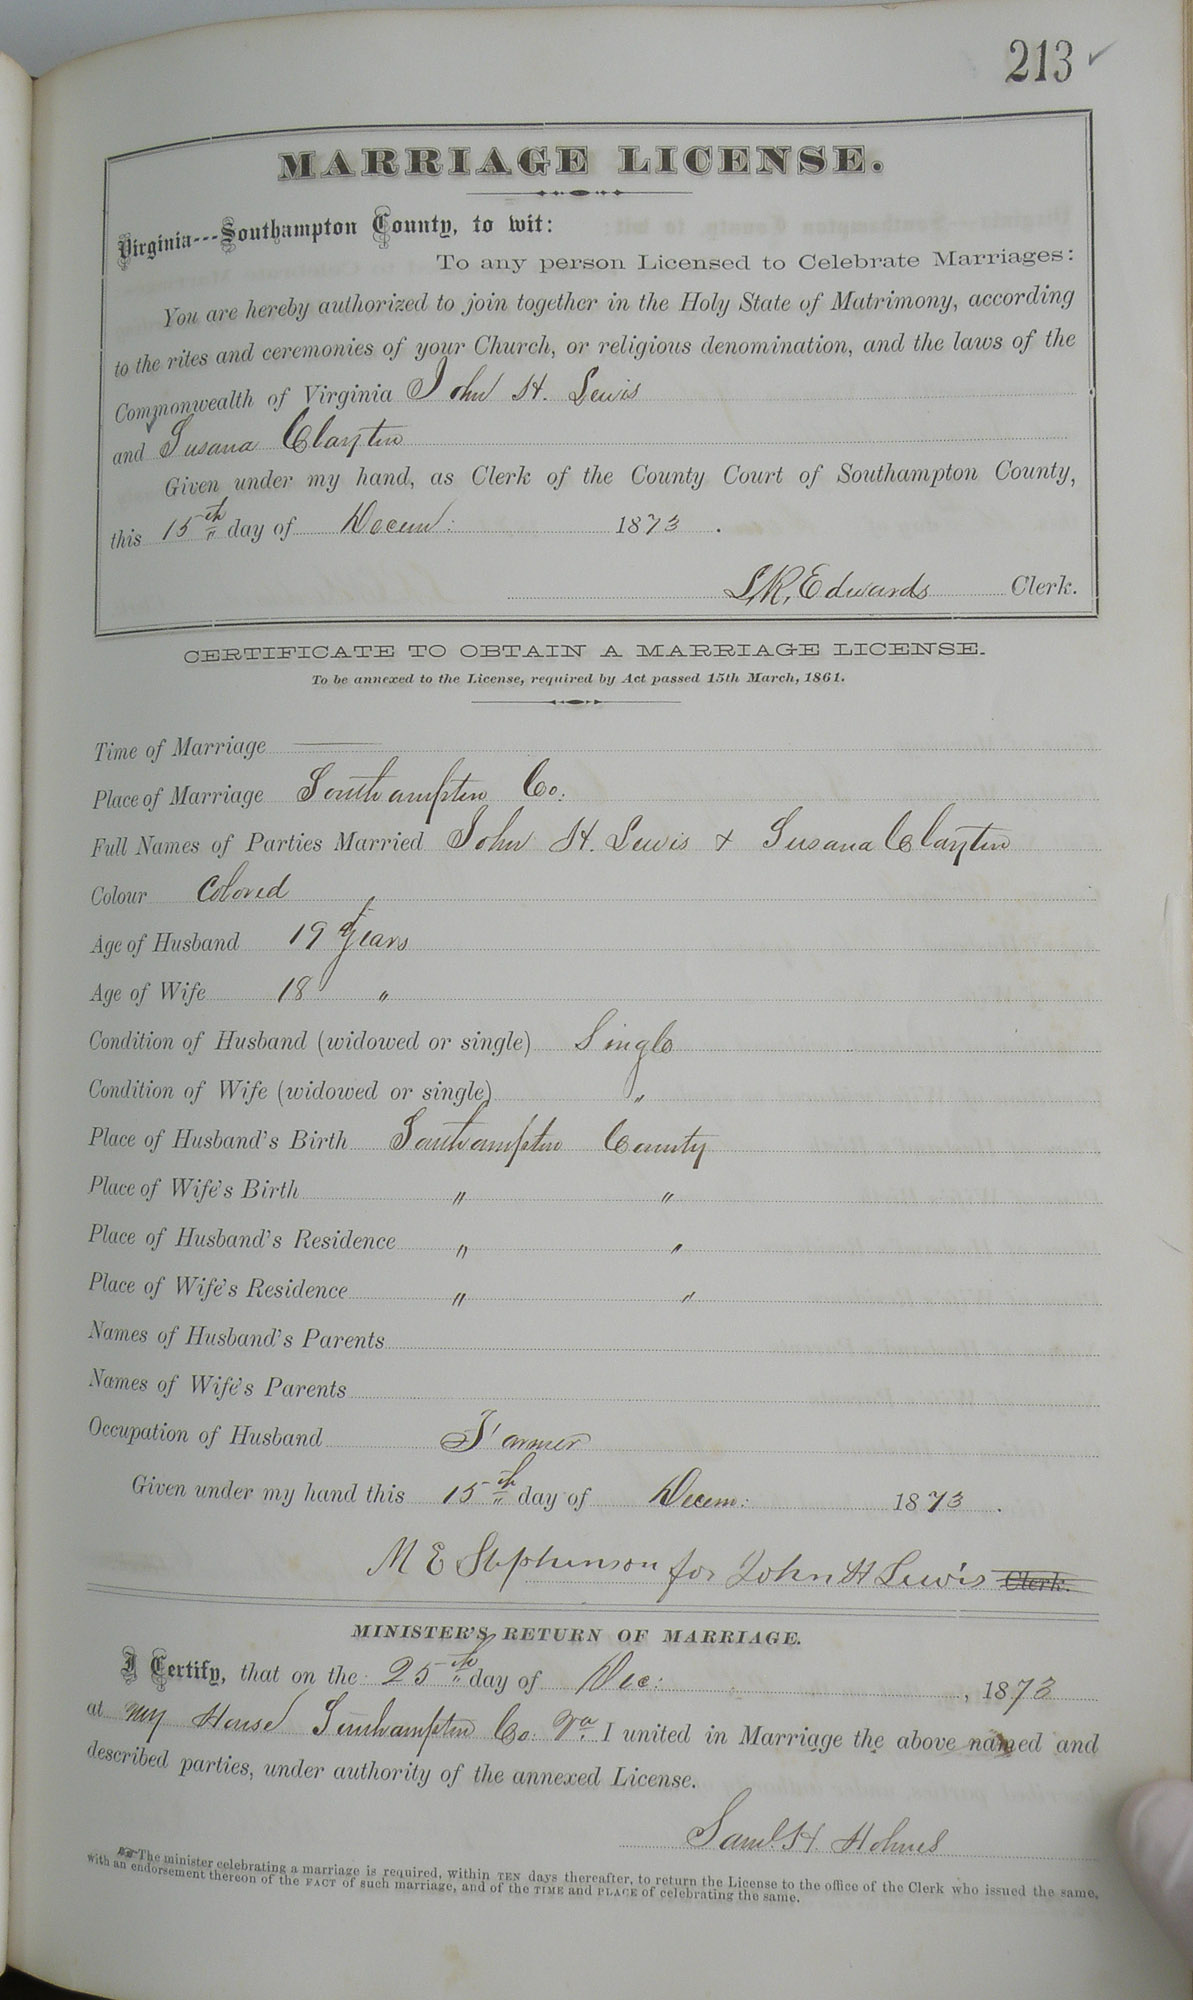 213 ✓
MARRIAGE LICENSE.
Virginia---Southampton County, to wit:
To any person Licensed to Celebrate Marriages:
You are hereby authorized to join together in the Holy State of Matrimony, according
to the rites and ceremonies of your Church, or religious denomination, and the laws of the
Commonwealth of Virginia John H. Lewis
and Susana Clayton
Given under my hand, as Clerk of the County Court of Southampton County,
this 15th day of Decem: 1873.
L. R. Edwards Clerk.
CERTIFICATE TO OBTAIN A MARRIAGE LICENSE.
To be annexed to the License, required by Act passed 15th March, 1861.
Time of Marriage ——
Place of Marriage Southampton Co:
Full Names of Parties Married John H. Lewis & Susana Clayton
Colour Colored
Age of Husband 19 Years
Age of Wife 18 "
Condition of Husband (widowed or single) Single
Condition of Wife (widowed or single) "
Place of Husband's Birth Southampton County
Place of Wife's Birth " "
Place of Husband's Residence " "
Place of Wife's Residence " "
Names of Husband's Parents
Names of Wife's Parents
Occupation of Husband Farmer
Given under my hand this 15th day of Decem: 1873.
M E Stephenson for John H Lewis Clerk.
MINISTER'S RETURN OF MARRIAGE.
I Certify, that on the 25th day of Dec: , 1873
at my House Southampton Co. Va. I united in Marriage the above named and
described parties, under authority of the annexed License.
Saml. H. Holmes
The minister celebrating a marriage is required, within TEN days thereafter, to return the License to the office of the Clerk who issued the same,
with an endorsement thereon of the FACT of such marriage, and of the TIME and PLACE of celebrating the same.